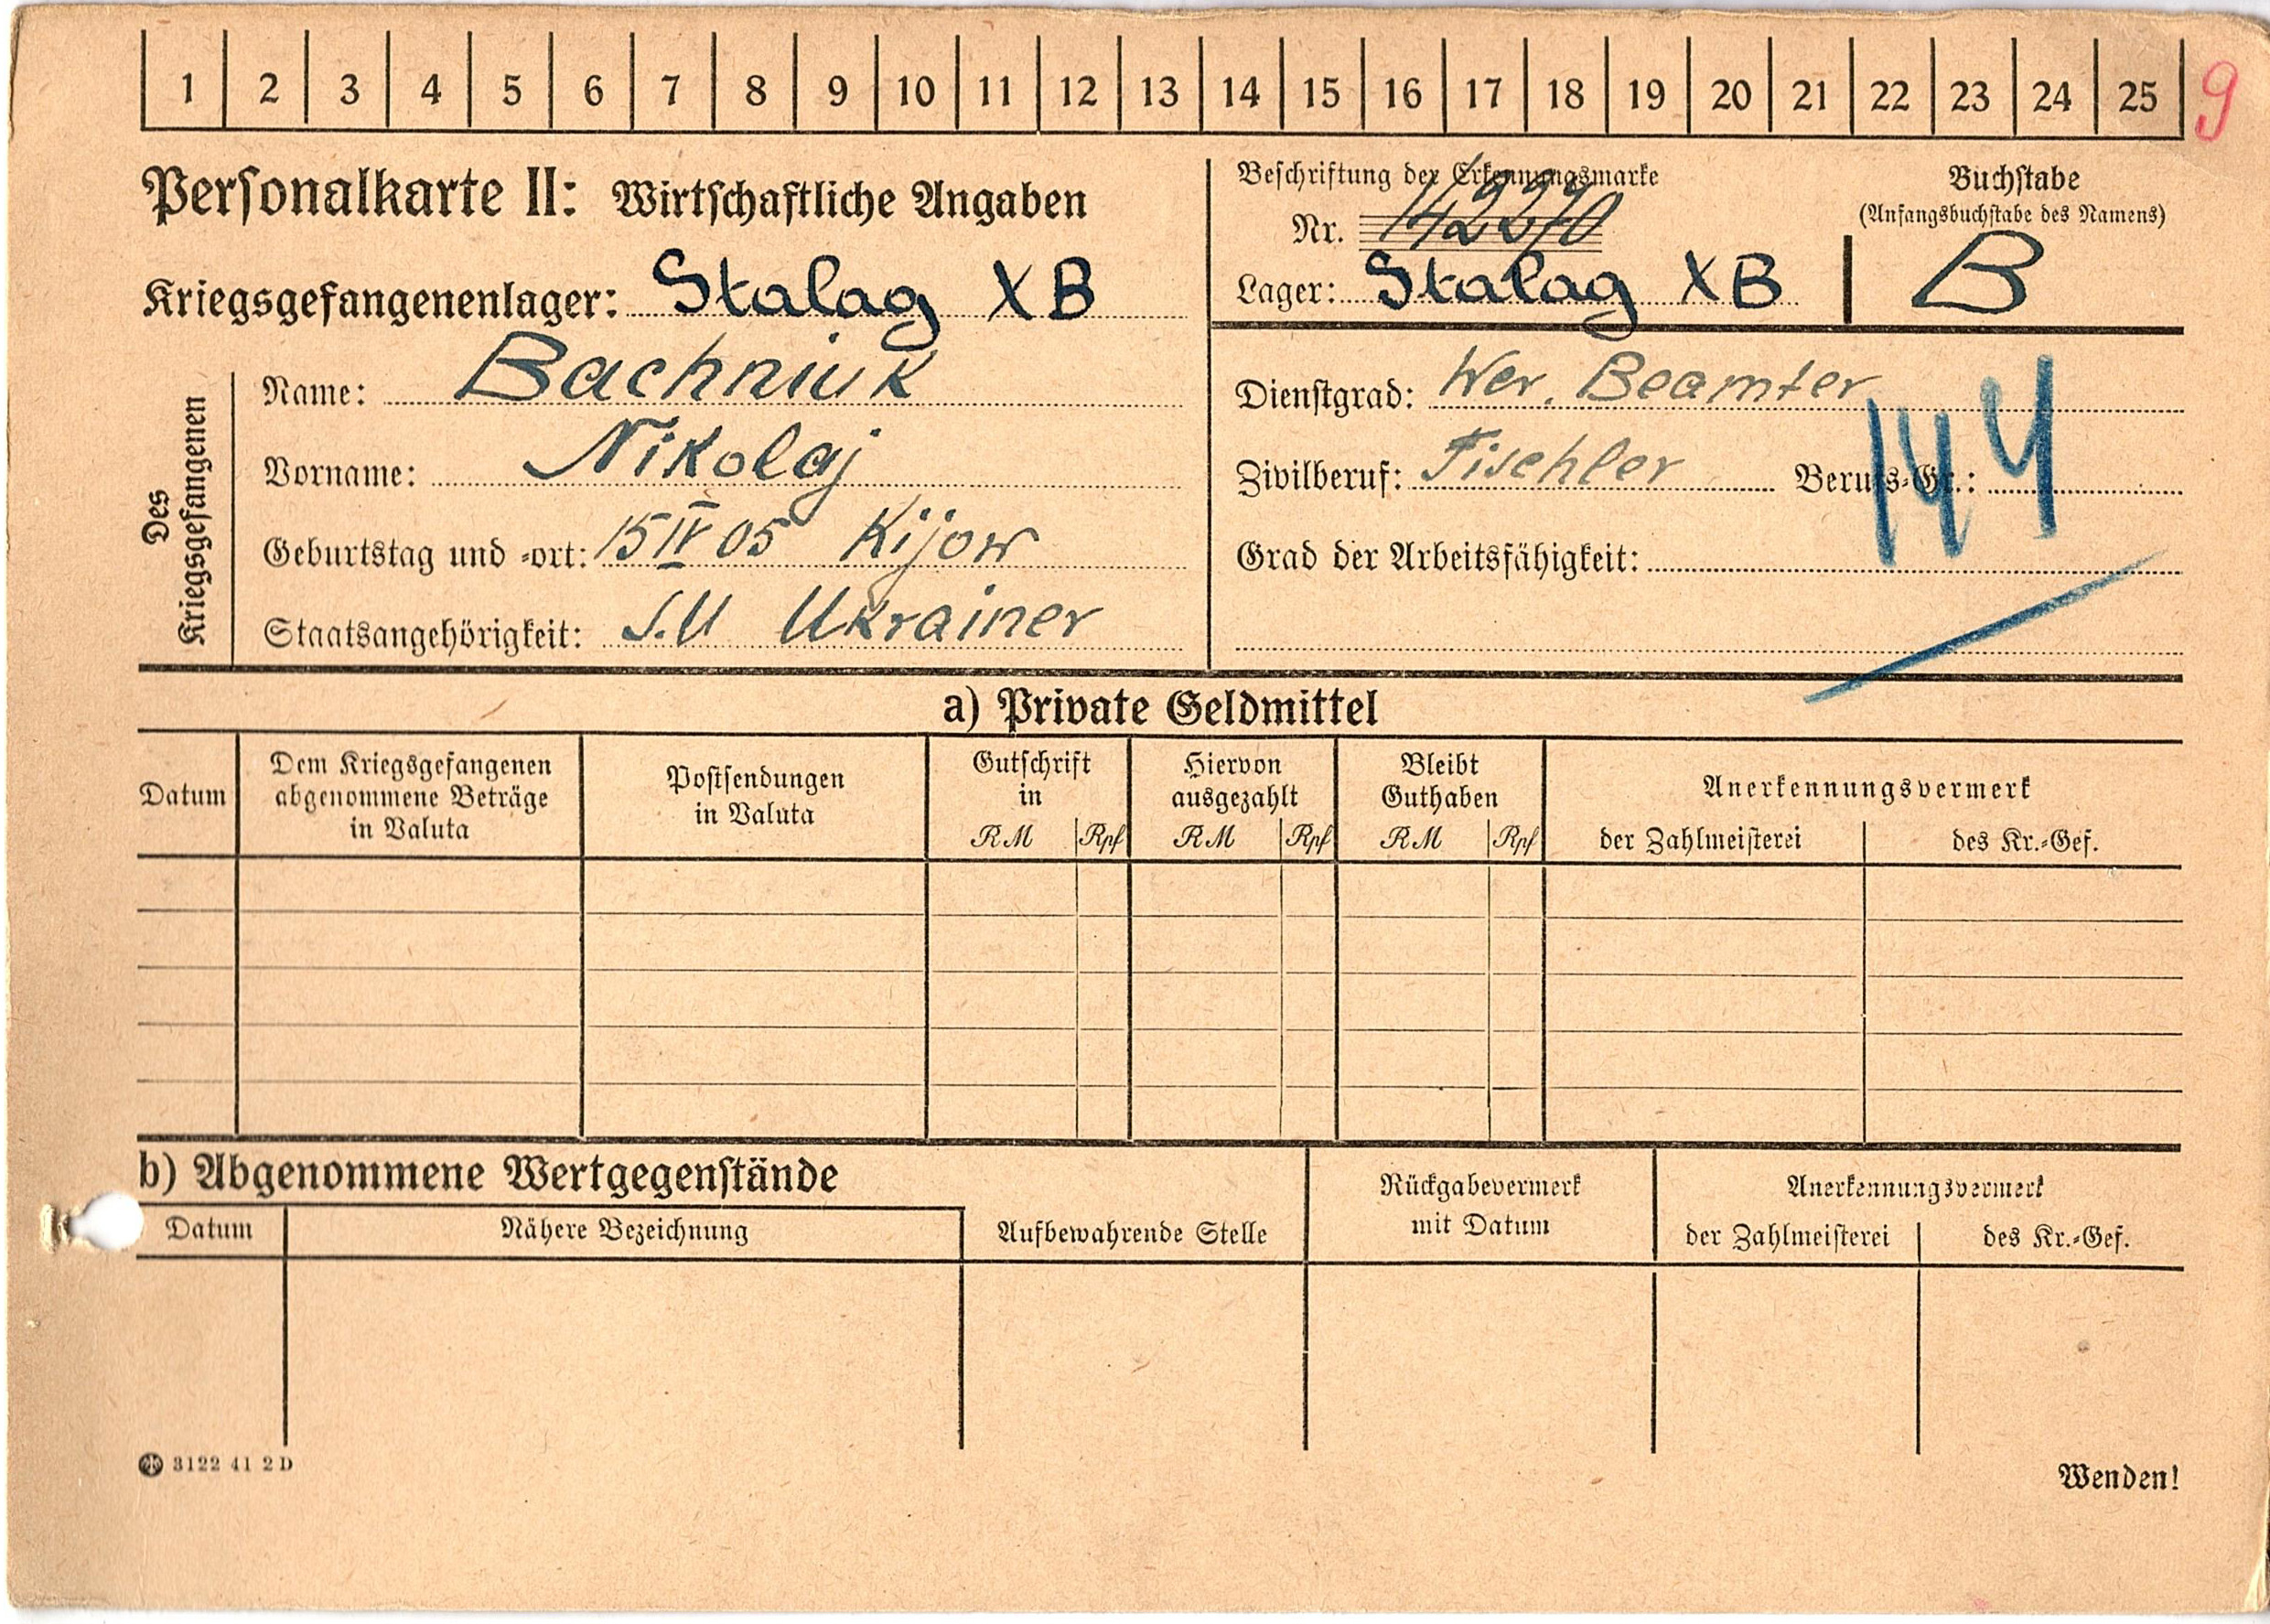 1 2 3 4 5 6 7 8 9 10 11 12 13 14 15 16 17 18 19 20 21 22 23 24 25 9
Personalkarte II: Wirtschaftliche Angaben
Beschriftung der Erkennungsmarke
Nr.
Lager: Stalag XB
Buchstabe
(Anfangsbuchstabe des Namens)
B
Kriegsgefangenenlager: Stalag XB
Des Kriegsgefangenen
Name: Bachniuk
Vorname: Nikolaj
Geburtstag und -ort: 15 IV 05 Kijow
Staatsangehörigkeit: S.U Ukrainer
Dienstgrad: Wer. Beamter
Zivilberuf: Fischler Berufs-Gr.:
144
Grad der Arbeitsfähigkeit:
a) Private Geldmittel
Datum
Dem Kriegsgefangenen
abgenommene Beträge
in Valuta
Postsendungen
in Valuta
Gutschrift
in
RM Rpf
Hiervon
ausgezahlt
RM Rpf
Bleibt
Guthaben
RM Rpf
Anerkennungsvermerk
der Zahlmeisterei des Kr.-Gef.
b) Abgenommene Wertgegenstände
Datum Nähere Bezeichnung
Aufbewahrende Stelle
Rückgabevermerk
mit Datum
Anerkennungsvermerk
der Zahlmeisterei des Kr.-Gef.
3122 41 2D
Wenden!